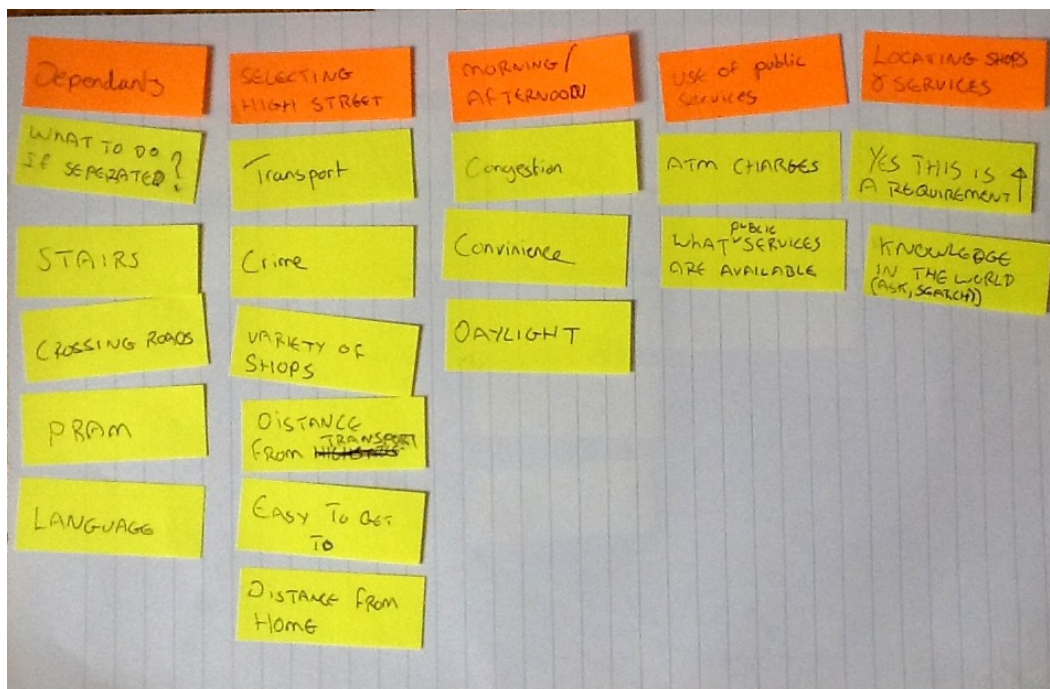 Dependants
WHAT TO DO
IF SEPERATED?
STAIRS
CROSSING ROADS
PRAM
LANGUAGE
SELECTING
HIGH STREET
Transport
Crime
VARIETY OF
SHOPS
DISTANCE
FROM TRANSPORT
EASY TO GET
TO
DISTANCE FROM
HOME
MORNING/
AFTERNOON
Congestion
Convinience
DAYLIGHT
USE of public
services
ATM CHARGES
WHAT PUBLIC SERVICES
ARE AVAILABLE
LOCATING SHOPS
& SERVICES
YES THIS IS
A REQUIREMENT ↑
KNOWLEDGE
IN THE WORLD
(ASK, SEARCH)